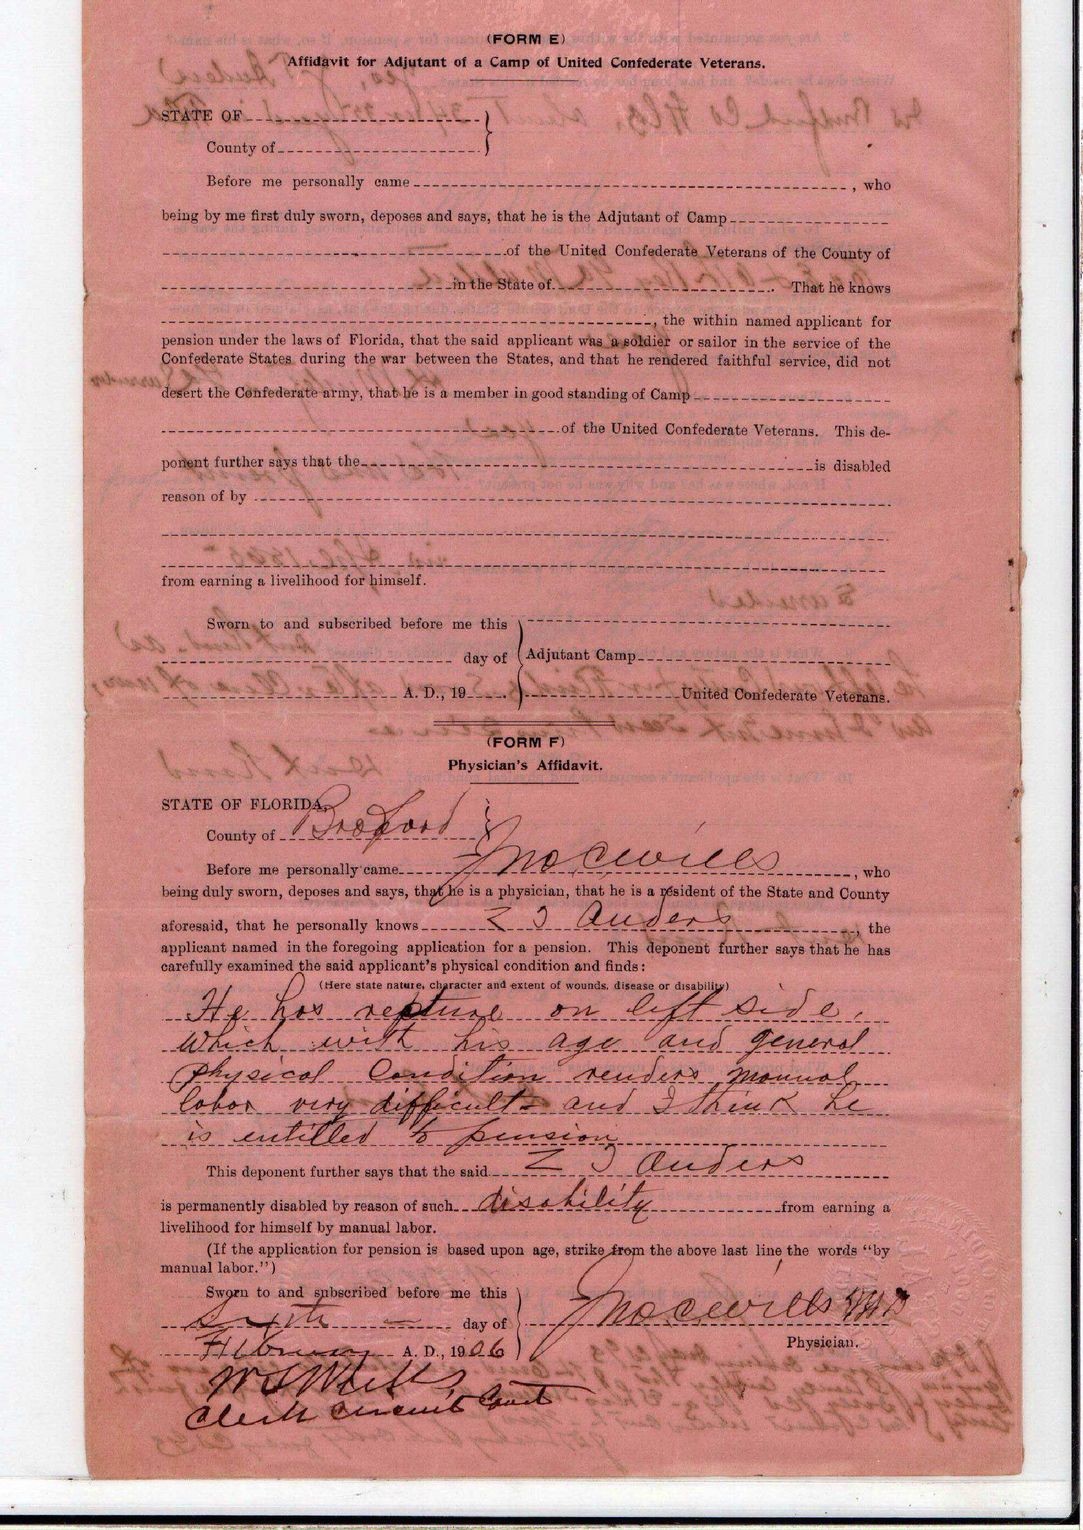 (FORM E)
Affidavit for Adjutant of a Camp of United Confederate Veterans.
STATE OF
County of
Before me personally came , who
being by me first duly sworn, deposes and says, that he is the Adjutant of Camp
of the United Confederate Veterans of the County of
in the State of . That he knows
, the within named applicant for
pension under the laws of Florida, that the said applicant was a soldier or sailor in the service of the
Confederate States during the war between the States, and that he rendered faithful service, did not
desert the Confederate army, that he is a member in good standing of Camp
of the United Confederate Veterans. This de-
ponent further says that the is disabled
reason of by
from earning a livelihood for himself.
Sworn to and subscribed before me this
day of Adjutant Camp
A. D., 19 . United Confederate Veterans.
(FORM F)
Physician's Affidavit.
STATE OF FLORIDA,
County of Bradford
Before me personally came Jno C Wills , who
being duly sworn, deposes and says, that he is a physician, that he is a resident of the State and County
aforesaid, that he personally knows Z J Anders , the
applicant named in the foregoing application for a pension. This deponent further says that he has
carefully examined the said applicant's physical condition and finds:
(Here state nature, character and extent of wounds, disease or disability)
He has repture on left side,
which with his age and general
physical condition renders manual
labor very difficult and I think he
is entitled to pension
This deponent further says that the said Z J Anders
is permanently disabled by reason of such disability from earning a
livelihood for himself by manual labor.
(If the application for pension is based upon age, strike from the above last line the words "by
manual labor.")
Sworn to and subscribed before me this
Sixth day of Jno C Wills MD
February A. D., 1906 Physician.
Clerk Circuit Court